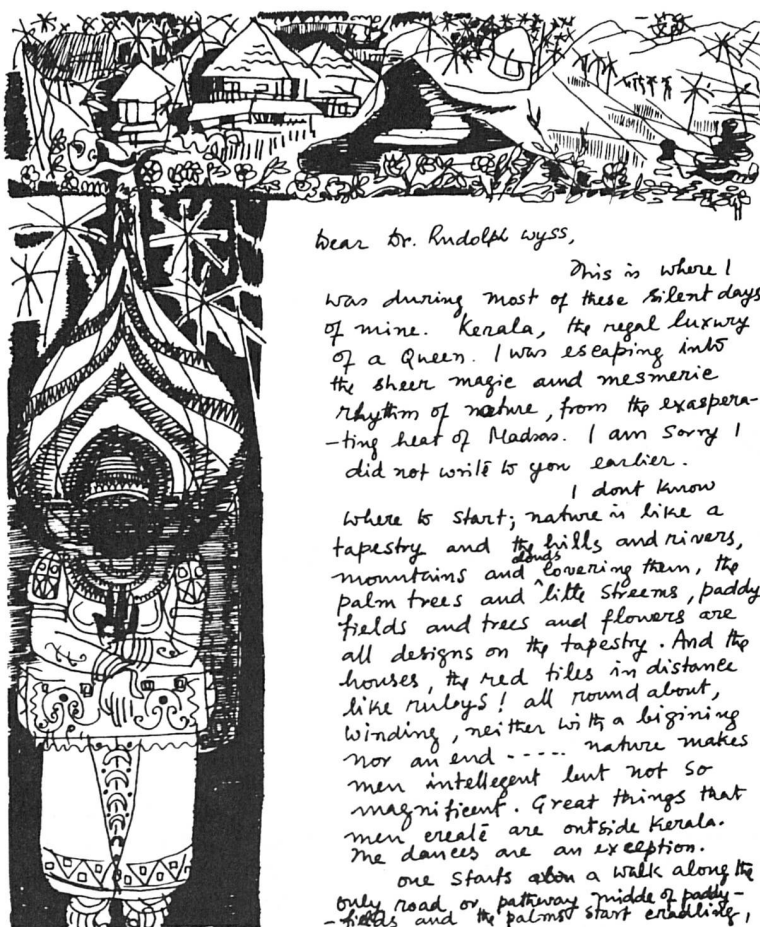 Dear Dr. Rudolph Wyss,
This is where I
was during most of these silent days
of mine. Kerala, the regal luxury
of a Queen. I was escaping into
the sheer magic and mesmeric
rhythm of nature, from the exaspera-
-ting heat of Madras. I am sorry I
did not write to you earlier.
I dont know
where to start; nature is like a
tapestry and the hills and rivers,
mountains and clouds covering them, the
palm trees and little streems, paddy
fields and trees and flowers are
all designs on the tapestry. And the
houses, the red tiles in distance
like rubeys! all round about,
winding, neither with a bigining
nor an end ----- nature makes
men intellegent but not so
magnificent. Great things that
men create are outside Kerala.
The dances are an exception.
one starts a walk along the
only road or pathway midde of paddy-
-fields and the palms start cradling,